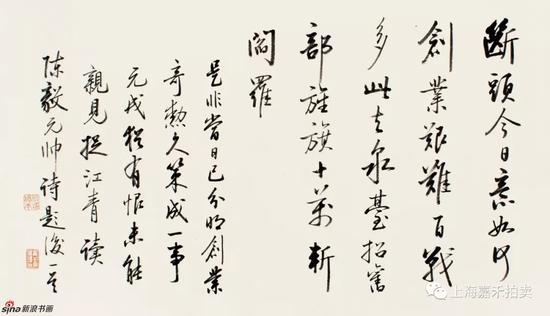 斷頭今日意如何
創業艱難百戰
多此去泉臺招舊
部旌旗十萬斬
閻羅
是非當日已分明創業
奇勳久策成一事
元戎猶有恨未能
親見捉江青讀
陳毅元帥詩題後一首
sina新浪书画
上海嘉禾拍卖